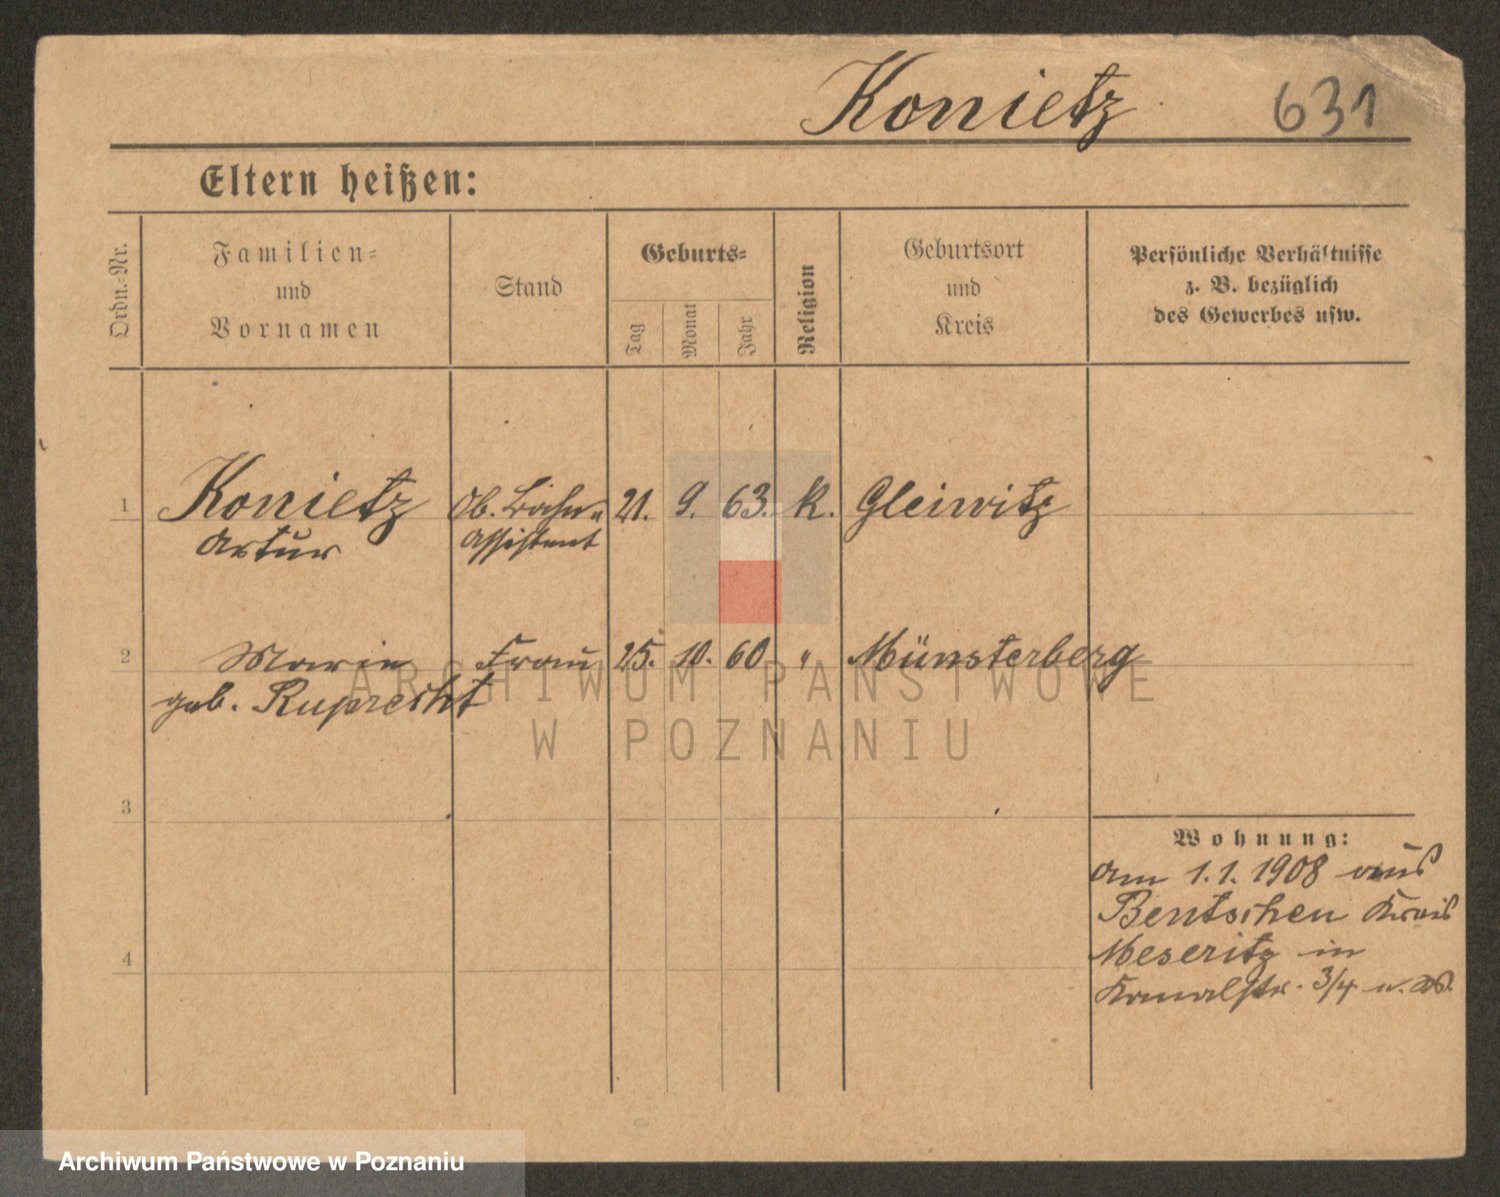 Konietz 631
Eltern heißen:
Ordn.-Nr.
Familien-
und
Vornamen
Stand
Geburts-
Tag
Monat
Jahr
Religion
Geburtsort
und
Kreis
Persönliche Verhältnisse
z. B. bezüglich
des Gewerbes usw.
1 Konietz Ob. Bahn- 21. 9. 63. K. Gleiwitz
Artur Assistent
2 Marie Frau 25. 10. 60 " Münsterberg
geb. Ruprecht
ARCHIWUM PAŃSTWOWE
W POZNANIU
3
Wohnung:
am 1.1.1908 aus
Bentschen Kreis
Meseritz in
Kanalstr. 3/4
4
Archiwum Państwowe w Poznaniu